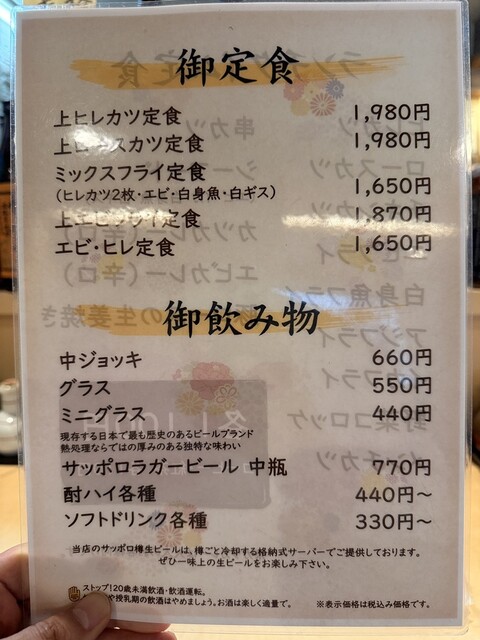 御定食
上ヒレカツ定食 1,980円
上ロースカツ定食 1,980円
ミックスフライ定食
(ヒレカツ2枚・エビ・白身魚・白ギス) 1,650円
上エビフライ定食 1,870円
エビ・ヒレ定食 1,650円
御飲み物
中ジョッキ 660円
グラス 550円
ミニグラス 440円
現存する日本で最も歴史のあるビールブランド
熱処理ならではの厚みのある独特な味わい
サッポロラガービール 中瓶 770円
酎ハイ各種 440円〜
ソフトドリンク各種 330円〜
当店のサッポロ樽生ビールは、樽ごと冷却する格納式サーバーでご提供しております。
ぜひ一味上の生ビールをお楽しみ下さい。
ストップ!20歳未満飲酒・飲酒運転。
や授乳期の飲酒はやめましょう。お酒は楽しく適量で。
※表示価格は税込み価格です。